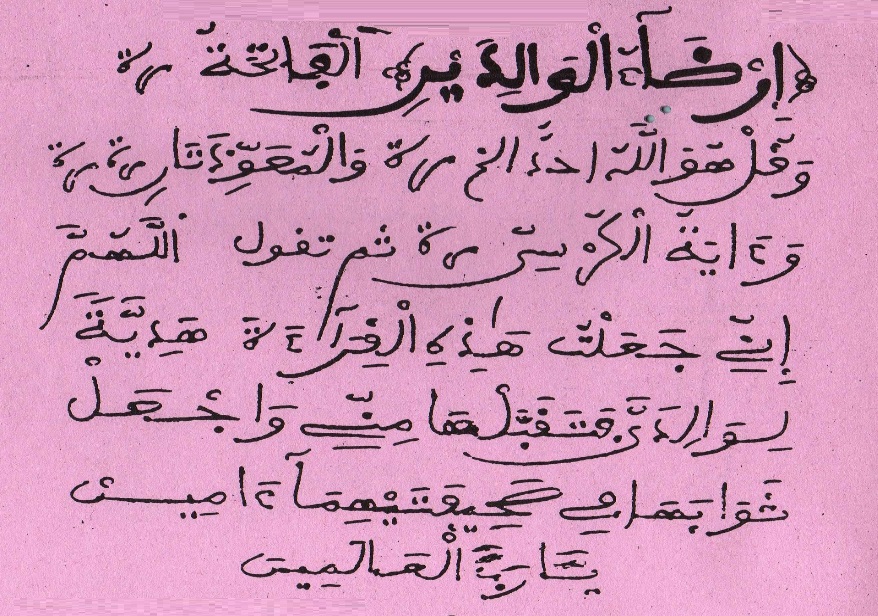 ﴿إِرْضَآءُ الْوَالِدَيْنِ﴾ اَلْفَاتِحَةُ مرة
وَقُلْ هُوَ اللَّهُ احدٌ الخ مرة وَالْمُعَوِّذَتَانِ مرة مرة
وَءَايَةُ الْكُرْسِيِّ مرة ثم تقول اللَّهُمَّ
إِنِّي جَعَلْتُ هَذِهِ الْقِرَآءَةَ هَدِيَّةً
لِوَالِدَيَّ فَتَقَبَّلْهَا مِنِّي وَاجْعَلْ
ثَوَابَهَا فِي صَحِيفَتَيْهِمَا ءَامِين
يَا رَبَّ الْعَالَمِين